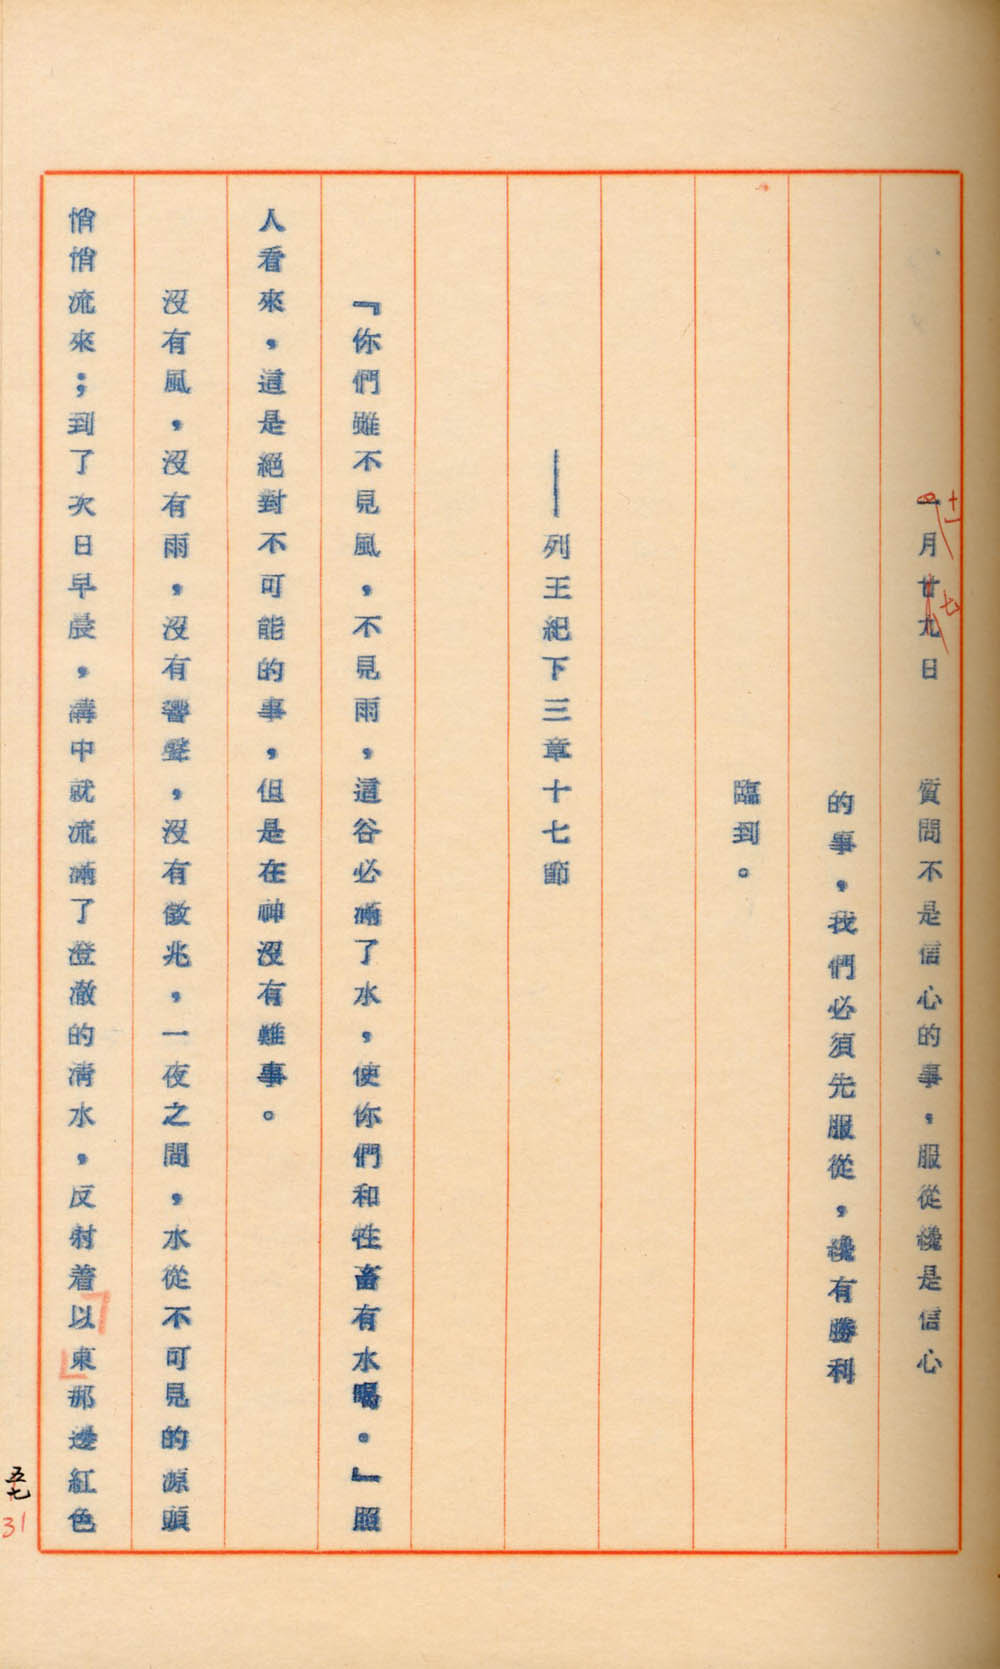 一月廿九日　質問不是信心的事，服從纔是信心
十一
七
的事，我們必須先服從，纔有勝利
臨到。
——列王紀下三章十七節
『你們雖不見風，不見雨，這谷必滿了水，使你們和牲畜有水喝。』照
人看來，這是絕對不可能的事，但是在神沒有難事。
沒有風，沒有雨，沒有響聲，沒有徵兆，一夜之間，水從不可見的源頭
悄悄流來；到了次日早晨，溝中就流滿了澄澈的清水，反射着以東那邊紅色
五七
31